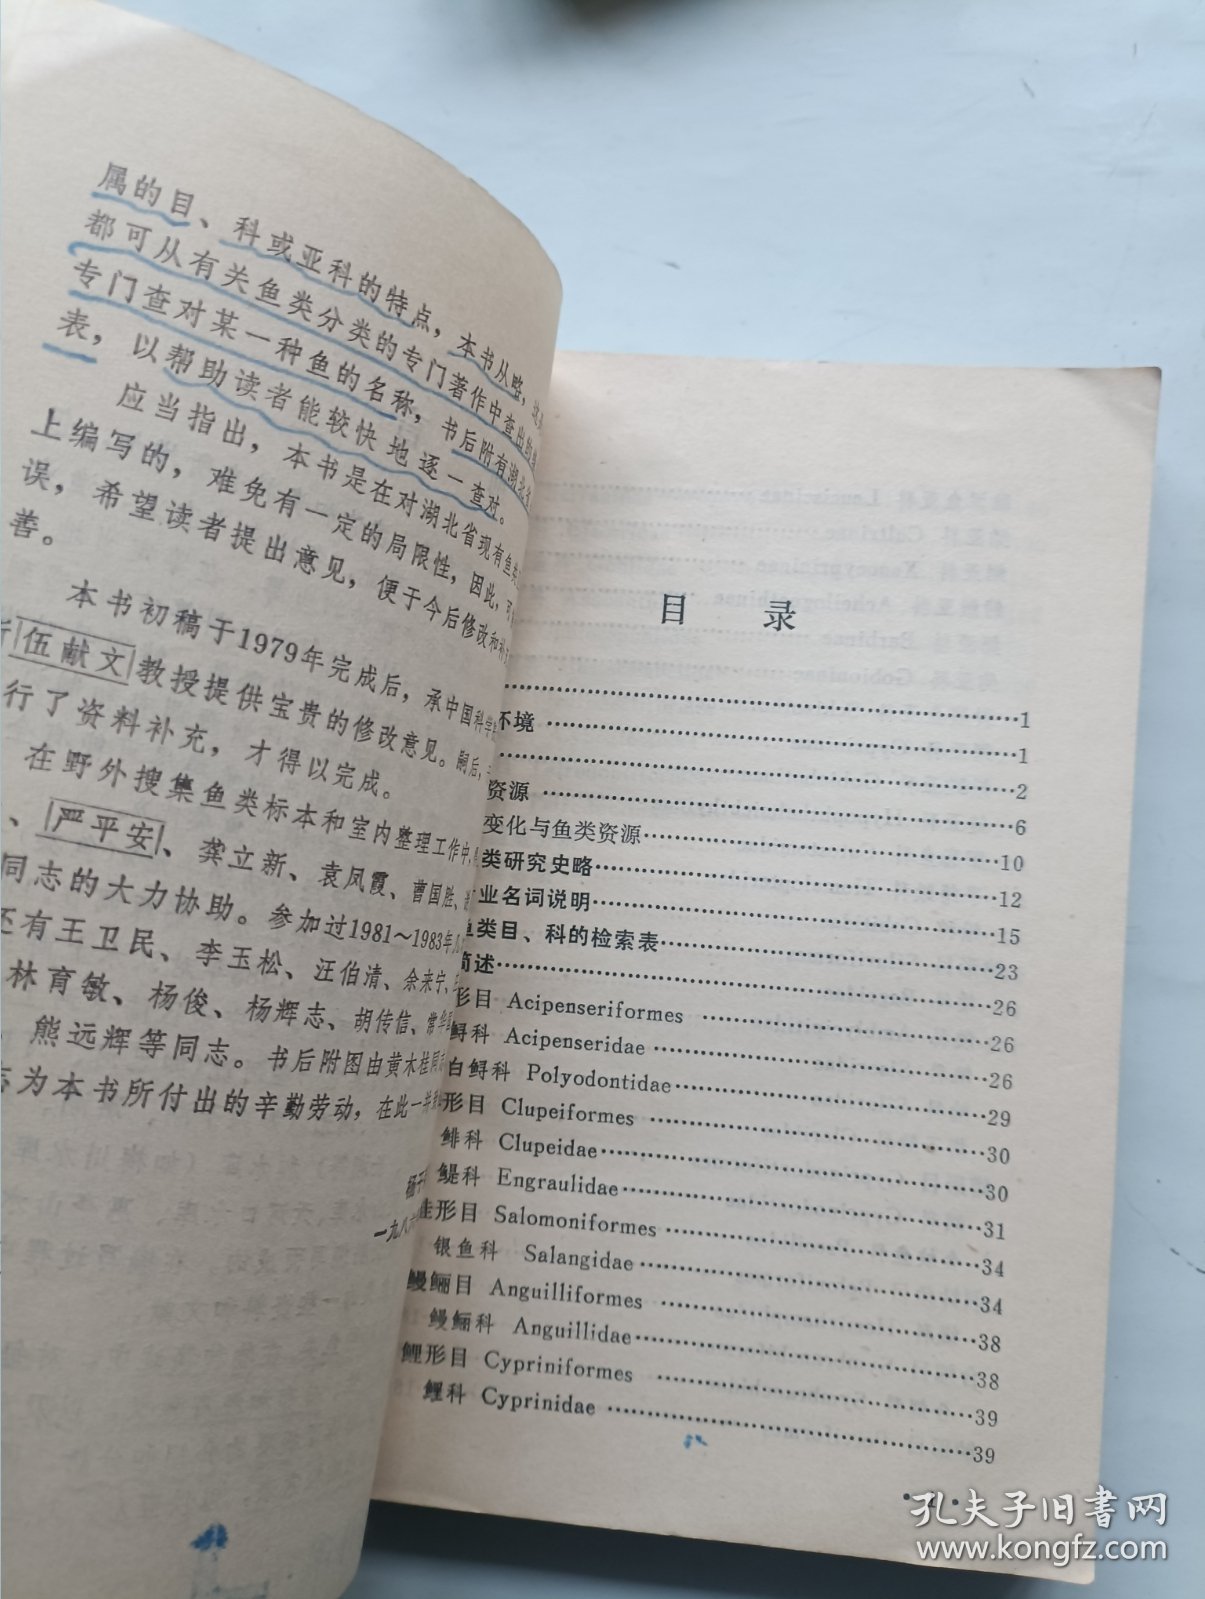 属的目、科或亚科的特点,本书从略,
都可从有关鱼类分类的专门著作中查出
专门查对某一种鱼的名称,书后附有湖北
表,以帮助读者能较快地逐一查对。
应当指出,本书是在对湖北省现有鱼
上编写的,难免有一定的局限性,因此,
误,希望读者提出意见,便于今后修改和
善。
本书初稿于1979年完成后,承中国科学
伍献文教授提供宝贵的修改意见。嗣后,
行了资料补充,才得以完成。
在野外搜集鱼类标本和室内整理工作中,
、严平安、龚立新、袁凤霞、曹国胜、
同志的大力协助。参加过1981~1983年
还有王卫民、李玉松、汪伯清、余来宁、
林育敏、杨俊、杨辉志、胡传信、常华
、熊远辉等同志。书后附图由黄木桂
为本书所付出的辛勤劳动,在此一并
杨干
一九八
目 录
1
环境 1
2
资源 6
变化与鱼类资源 10
类研究史略 12
业名词说明 15
类目、科的检索表 23
简述 26
形目 Acipenseriformes 26
鲟科 Acipenseridae 26
白鲟科 Polyodontidae 29
形目 Clupeiformes 30
鲱科 Clupeidae 30
鳀科 Engraulidae 31
鲑形目 Salomoniformes 34
银鱼科 Salangidae 34
鳗鲡目 Anguilliformes 38
鳗鲡科 Anguillidae 38
鲤形目 Cypriniformes 39
鲤科 Cyprinidae 39
孔夫子旧书网
www.kongfz.com